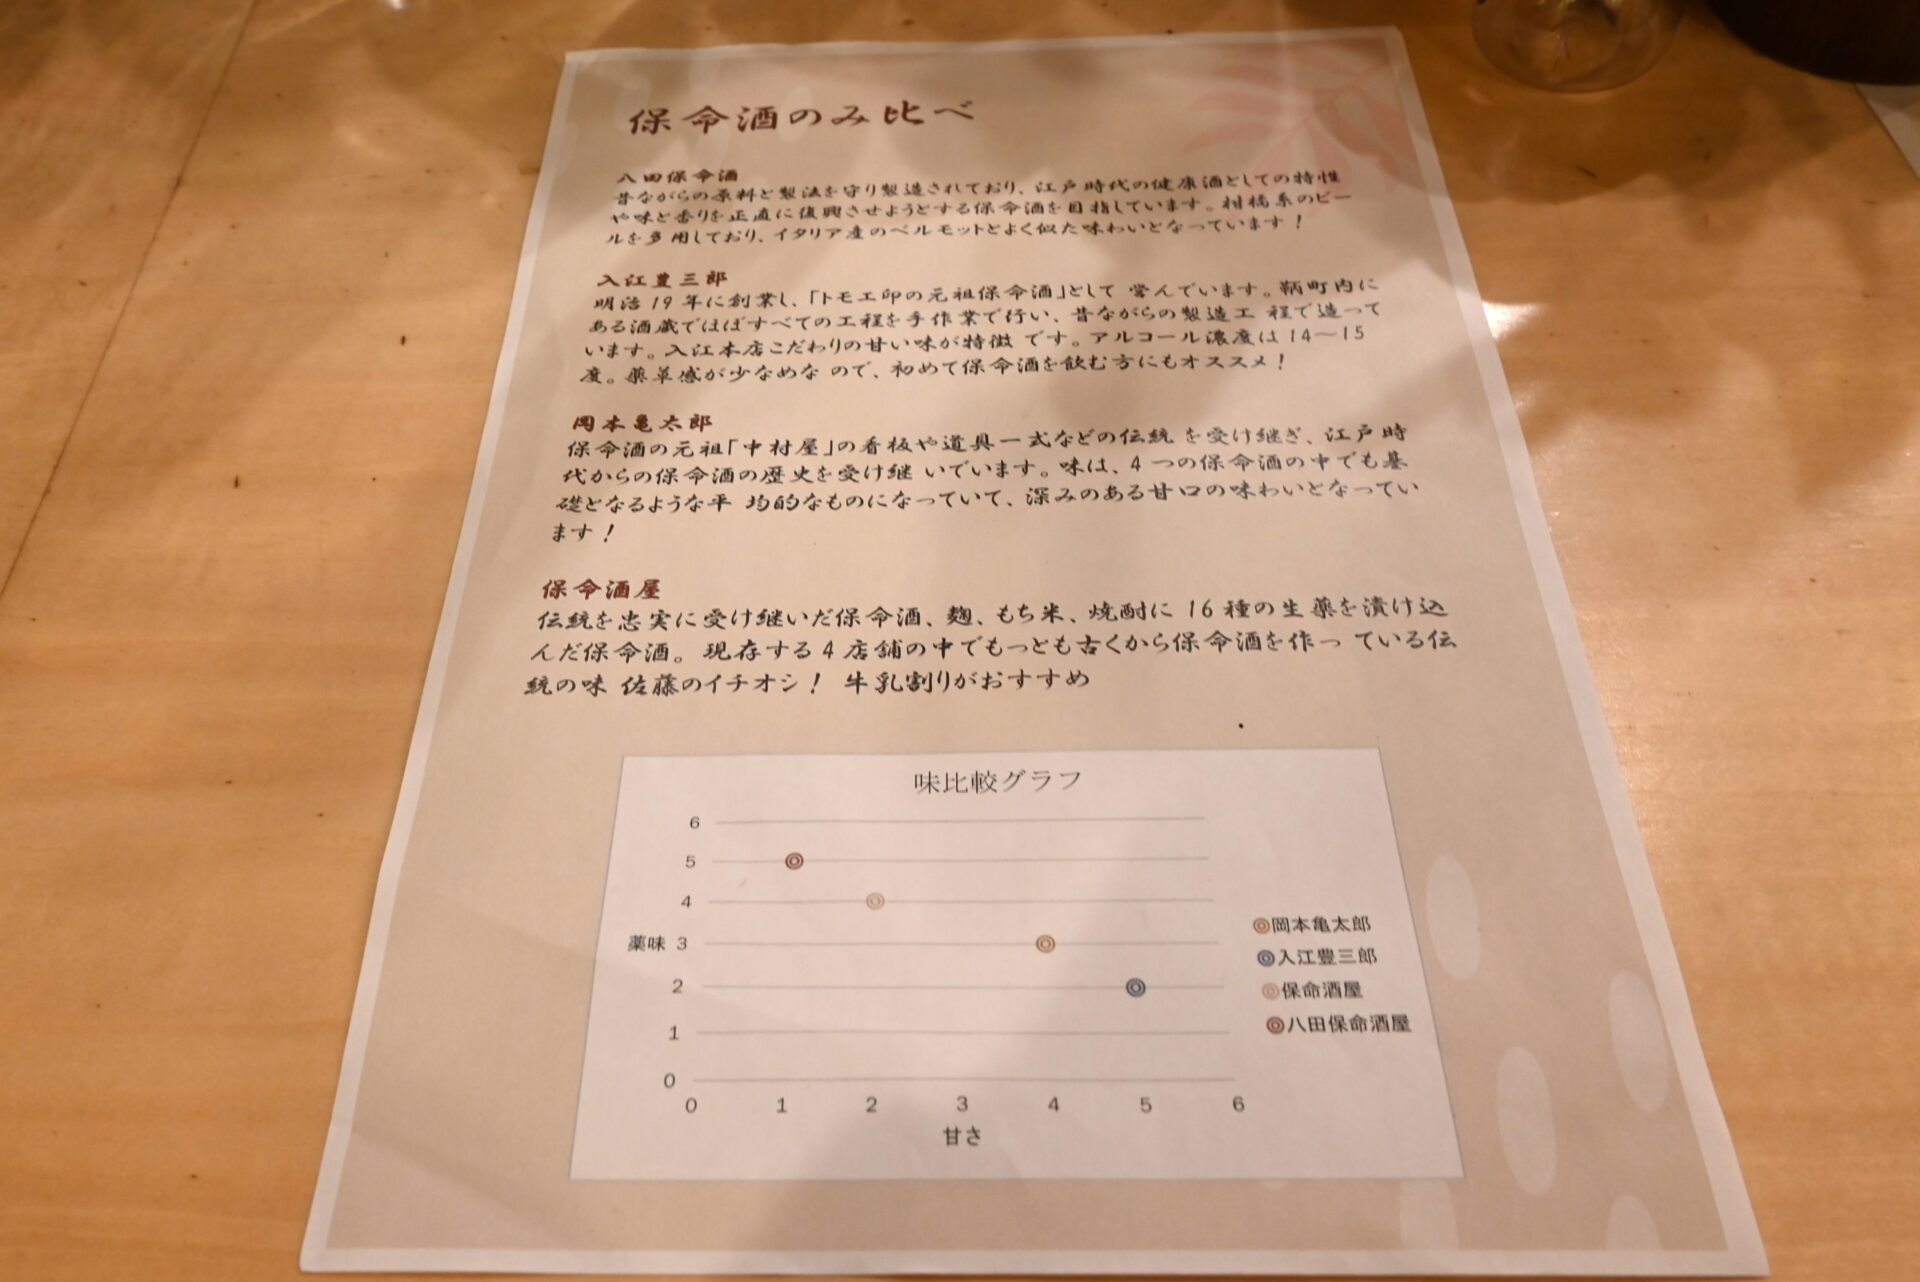 保命酒のみ比べ
八田保命酒
昔ながらの原料と製法を守り製造されており、江戸時代の健康酒としての特性
や味と香りを正直に復興させようとする保命酒を目指しています。柑橘系のピー
ルを多用しており、イタリア産のベルモットとよく似た味わいとなっています！
入江豊三郎
明治19年に創業し、「トモエ印の元祖保命酒」として 営んでいます。鞆町内に
ある酒蔵でほぼすべての工程を手作業で行い、昔ながらの製造工 程で造って
います。入江本店こだわりの甘い味が特徴 です。アルコール濃度は14～15
度。薬草感が少なめな ので、初めて保命酒を飲む方にもオススメ！
岡本亀太郎
保命酒の元祖「中村屋」の看板や道具一式などの伝統 を受け継ぎ、江戸時
代からの保命酒の歴史を受け継 いでいます。味は、4つの保命酒の中でも基
礎となるような平 均的なものになっていて、深みのある甘口の味わいとなってい
ます！
保命酒屋
伝統を忠実に受け継いだ保命酒、麹、もち米、焼酎に 16種の生薬を漬け込
んだ保命酒。現存する4店舗の中でもっとも古くから保命酒を作っ ている伝
統の味 佐藤のイチオシ！ 牛乳割りがおすすめ
味比較グラフ
6
5
4
薬味 3
2
1
0
0 1 2 3 4 5 6
甘さ
岡本亀太郎
入江豊三郎
保命酒屋
八田保命酒屋